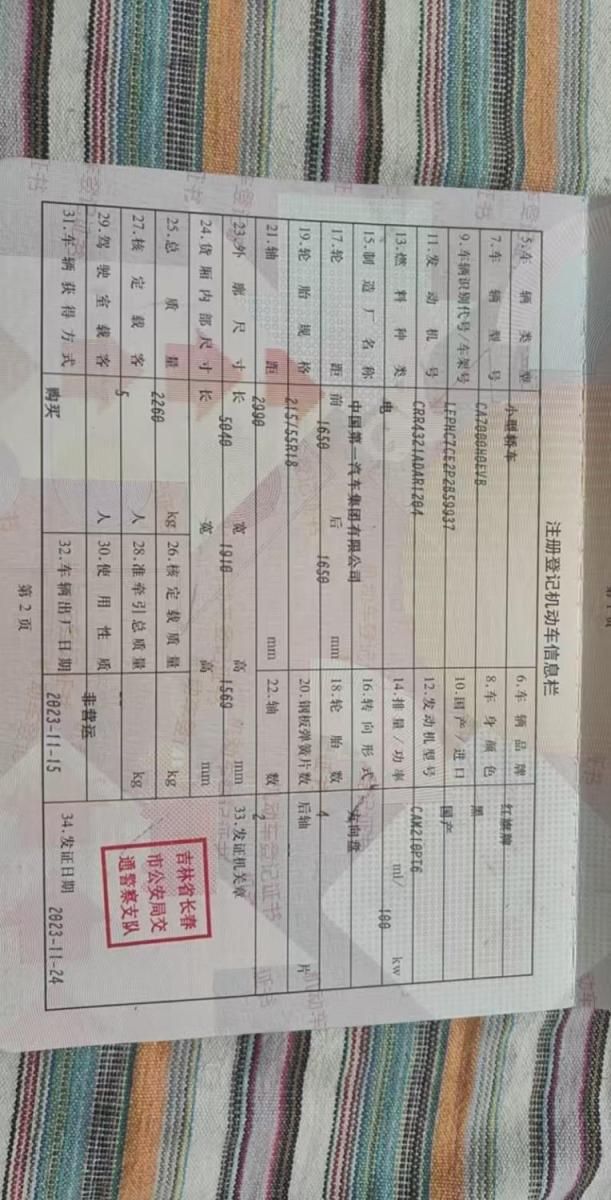 注册登记机动车信息栏
5.车辆类型 小型轿车 6.车辆品牌 红旗牌
7.车辆型号 CA7000H0EVB 8.车身颜色 黑
9.车辆识别代号/车架号 LFPHC7CE2P2B59937 10.国产/进口 国产
11.发动机号 CRR4321ADAR1204 12.发动机型号 CAM210PT6
13.燃料种类 电 14.排量/功率 ml/ 180 kw
15.制造厂名称 中国第一汽车集团有限公司 16.转向形式 方向盘
17.轮距 前 1650 后 1650 mm 18.轮胎数 4
19.轮胎规格 215/55R18 20.钢板弹簧片数 后轴 片
21.轴距 2990 mm 22.轴数 2
23.外廓尺寸 长 5040 宽 1910 高 1569 mm 33.发证机关章
24.货厢内部尺寸 长 宽 高 mm
25.总质量 2260 kg 26.核定载质量 kg
27.核定载客 5 人 28.准牵引总质量 -- kg
29.驾驶室载客 人 30.使用性质 非营运
31.车辆获得方式 购买 32.车辆出厂日期 2023-11-15 34.发证日期 2023-11-24
吉林省长春
市公安局交
通警察支队
第2页